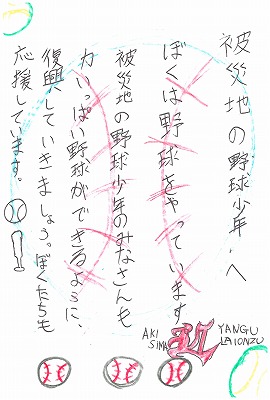 被災地の野球少年へ
ぼくは野球をやっています
被災地の野球少年のみなさんも
力いっぱい野球ができるように、
復興していきましょう。ぼくたちも
応援しています。
AKI
SIMA
YL
YANGU
LAIONZU